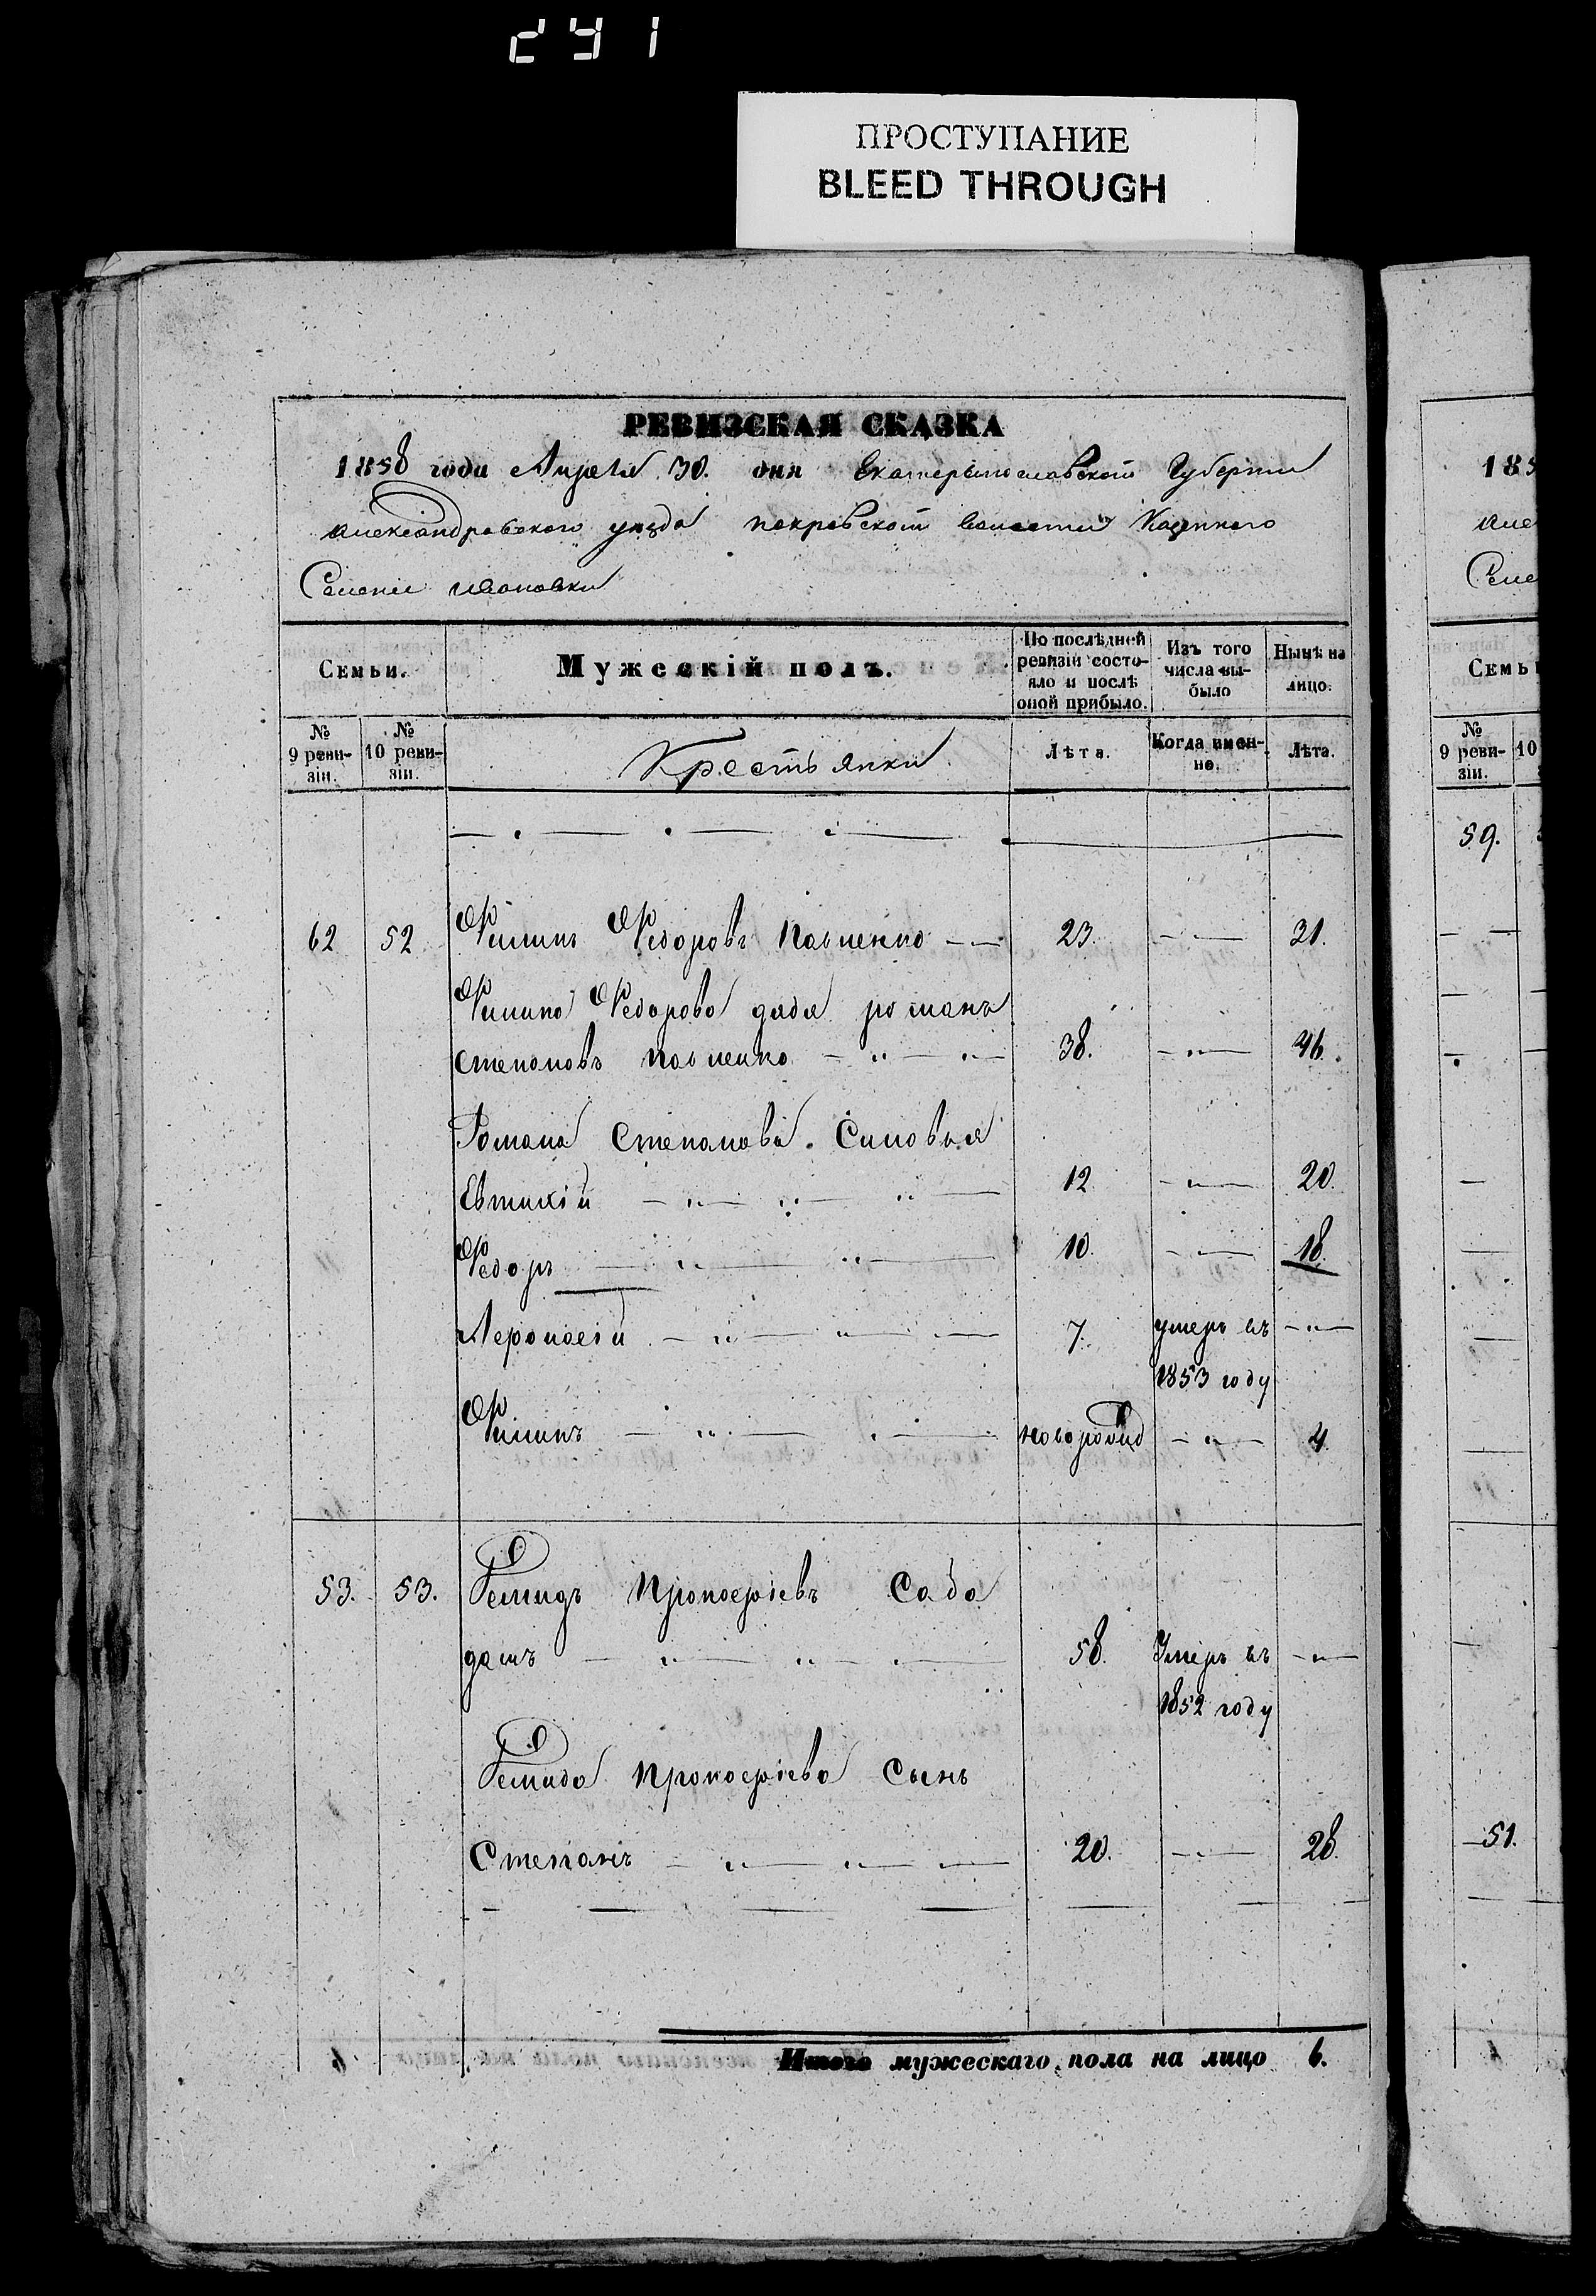 241
ПРОСТУПАНИЕ
BLEED THROUGH
РЕВИЗСКАЯ СКАЗКА
1858 года Апреля 30. дня Екатеринославской Губернии
Александровского уезда покровской волости Казенного
Селения Ивановки
Семьи. Мужескій полъ. По послѣдней ревизіи состояло и послѣ оной прибыло. Изъ того числа выбыло Нынѣ на лицо.
№ 9 ревизіи. № 10 ревизіи. Крестьянки Лѣта. Когда именно. Лѣта.
62 52 Филипъ Федоровъ Павленко 23. 31.
Филипа Федорова дядя романъ
степановъ павленко 38. 46.
Романа Степанова. Синовья
Евтихій 12 20.
Федоръ 10. 18.
7. умеръ въ
1853 году
Филипъ новорожд 4.
53. 53. Демидъ Прокофіевъ
58. Умеръ въ
1852 году
Демида Прокофіева Сынъ
Степанъ 20. 28.
Итого мужескаго пола на лицо 6.
185
Семьи
№ 9 ревизіи. 10
59.
51.